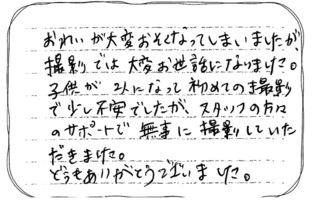 おれいが大変おそくなってしまいましたが、
撮影では大変お世話になりました。
子供が2人になって初めての撮影
で少し不安でしたが、スタッフの方々
のサポートで無事に撮影していた
だきました。
どうもありがとうございました。